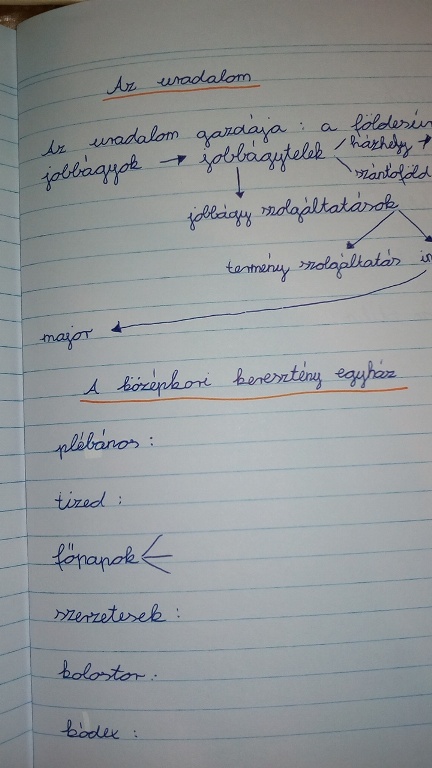 Az uradalom
Az uradalom gazdája : a földesúr
jobbágyok → jobbágytelek házhely →
szántóföld
jobbágy szolgáltatások
termény szolgáltatás
major
A középkori keresztény egyház
plébános :
tized :
főpapok
szerzetesek :
kolostor :
kódex :